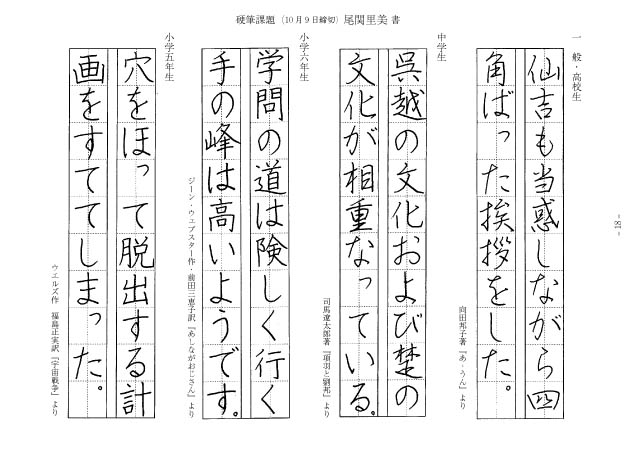 硬筆課題（10月9日締切）尾関里美 書
一般・高校生
仙吉も当惑しながら四
角ばった挨拶をした。
向田邦子著『あ・うん』より
中学生
呉越の文化および楚の
文化が相重なっている。
司馬遼太郎著『項羽と劉邦』より
小学六年生
学問の道は険しく行く
手の峰は高いようです。
ジーン・ウェブスター作・前田三恵子訳『あしながおじさん』より
小学五年生
穴をほって脱出する計
画をすててしまった。
ウエルズ作 福島正実訳『宇宙戦争』より
- 18 -